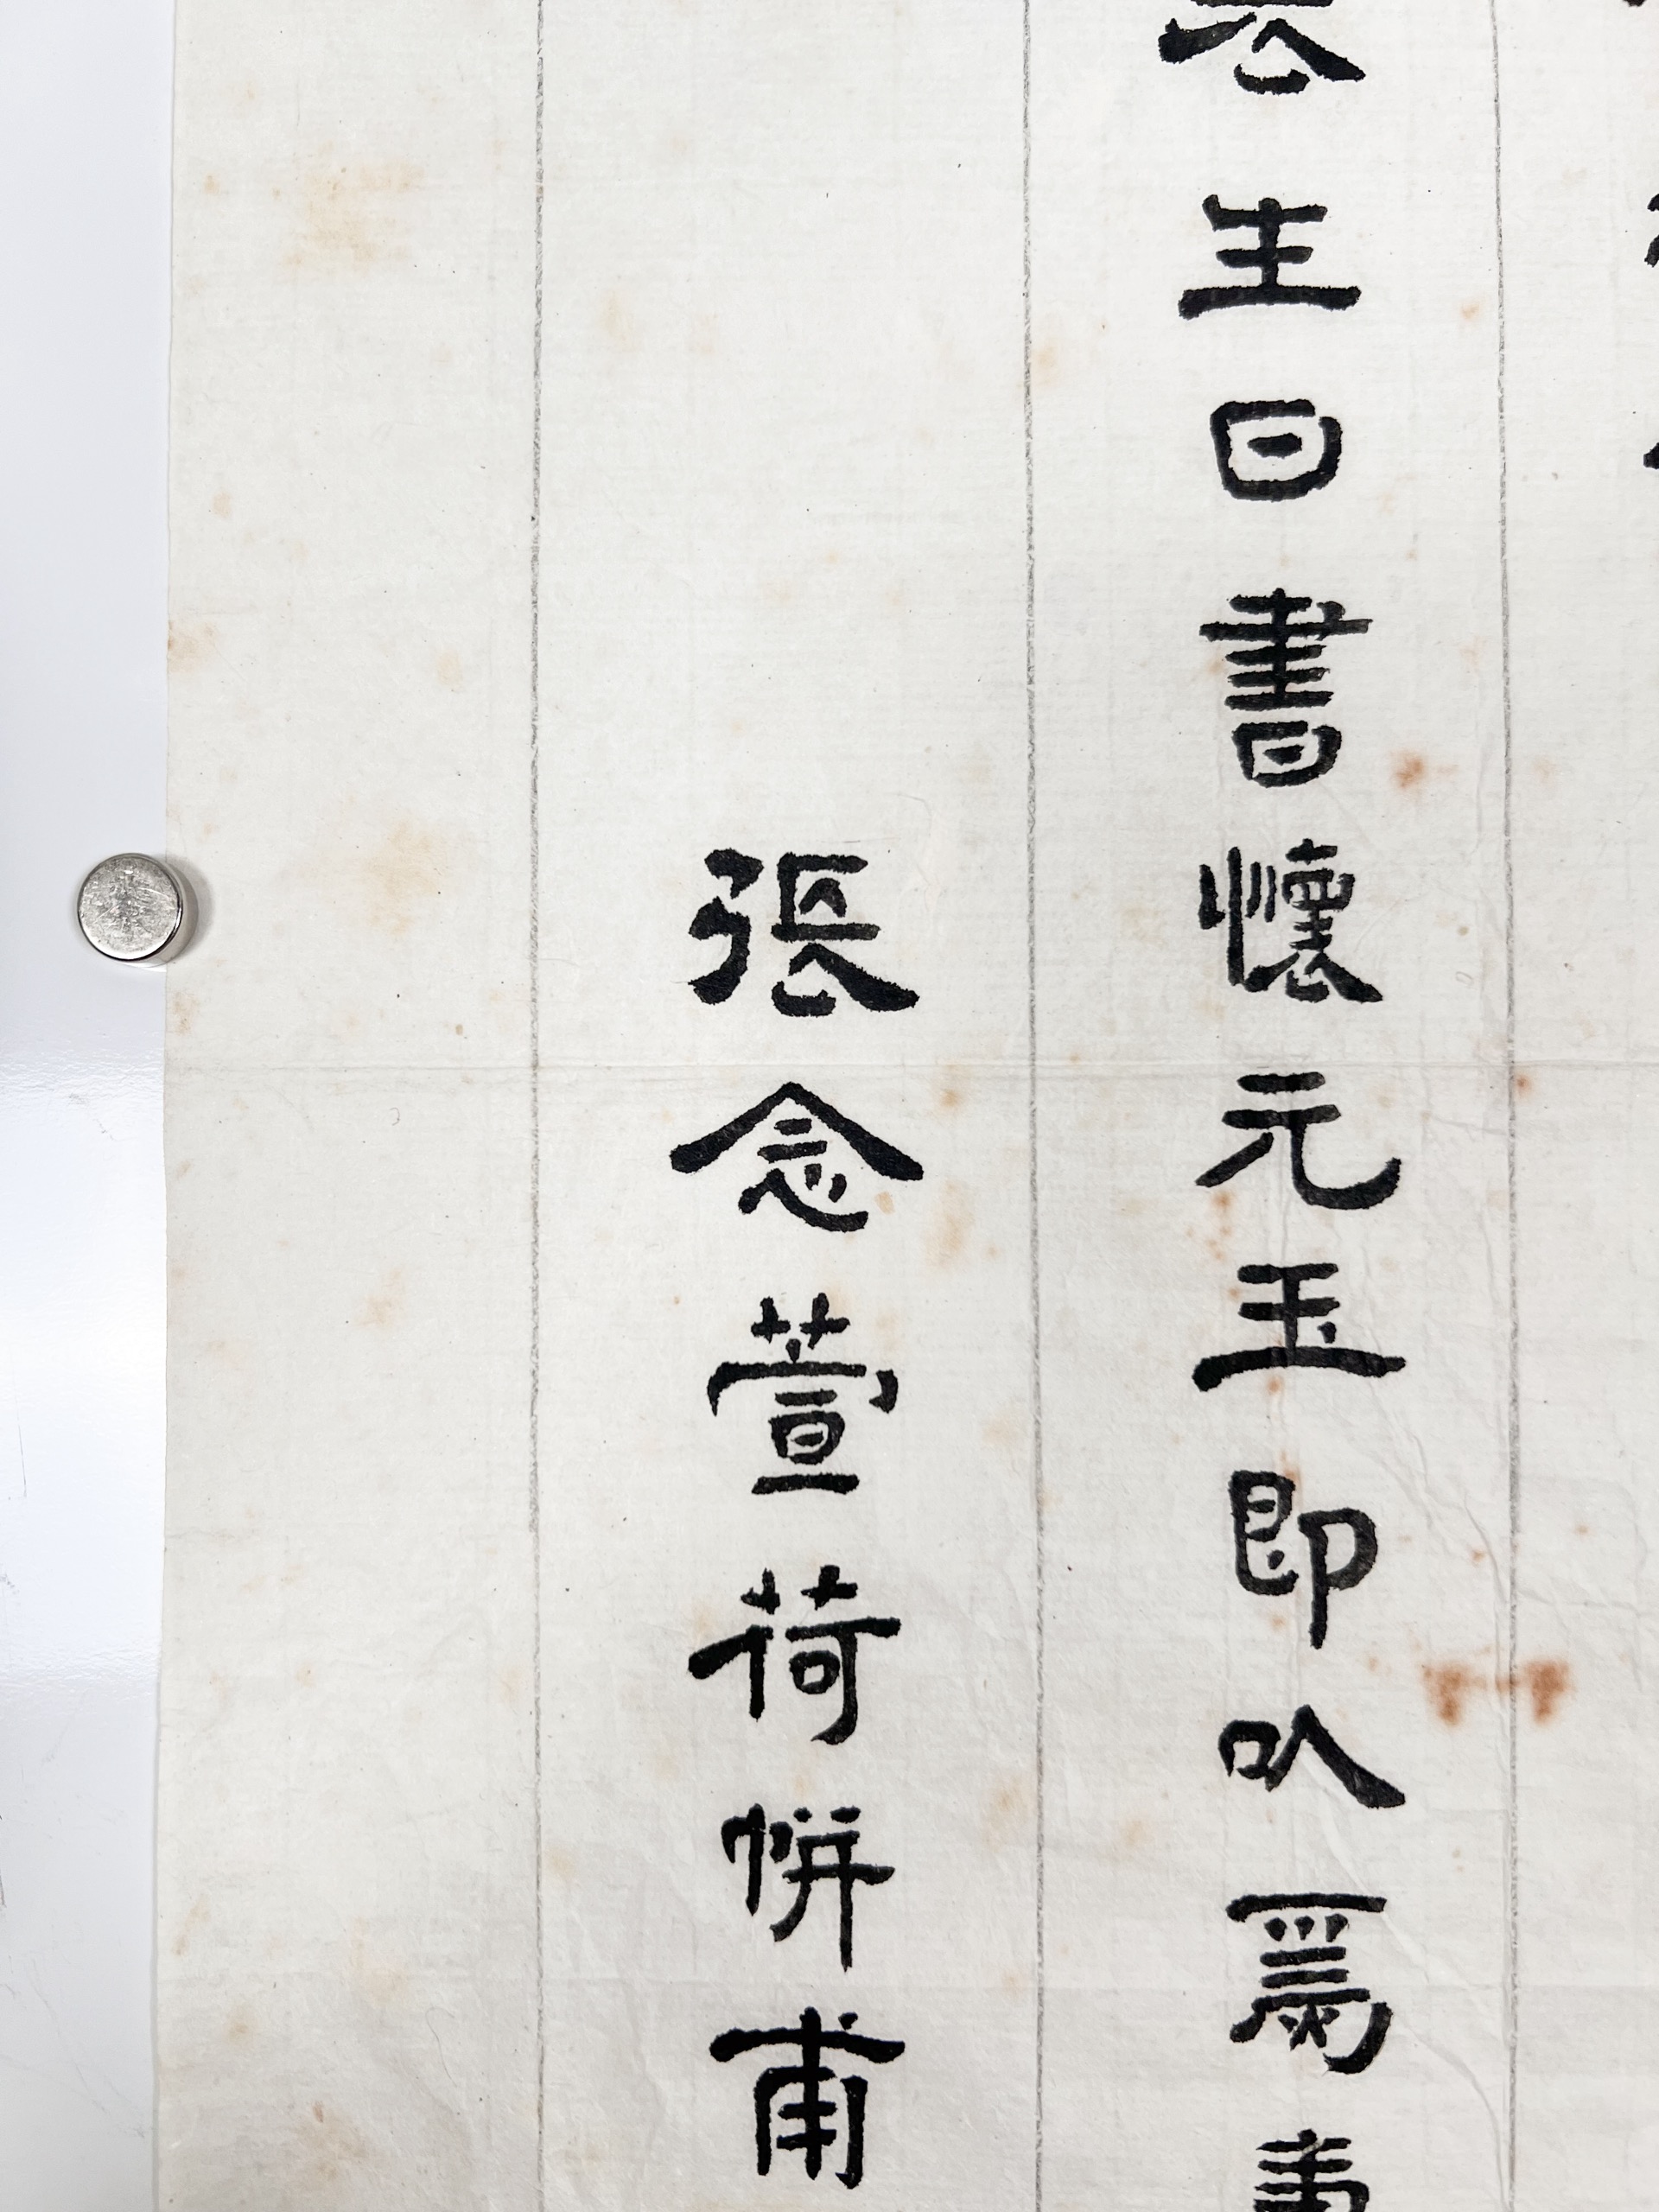 生日書懷元玉即以爲
張念萱荷帡甫